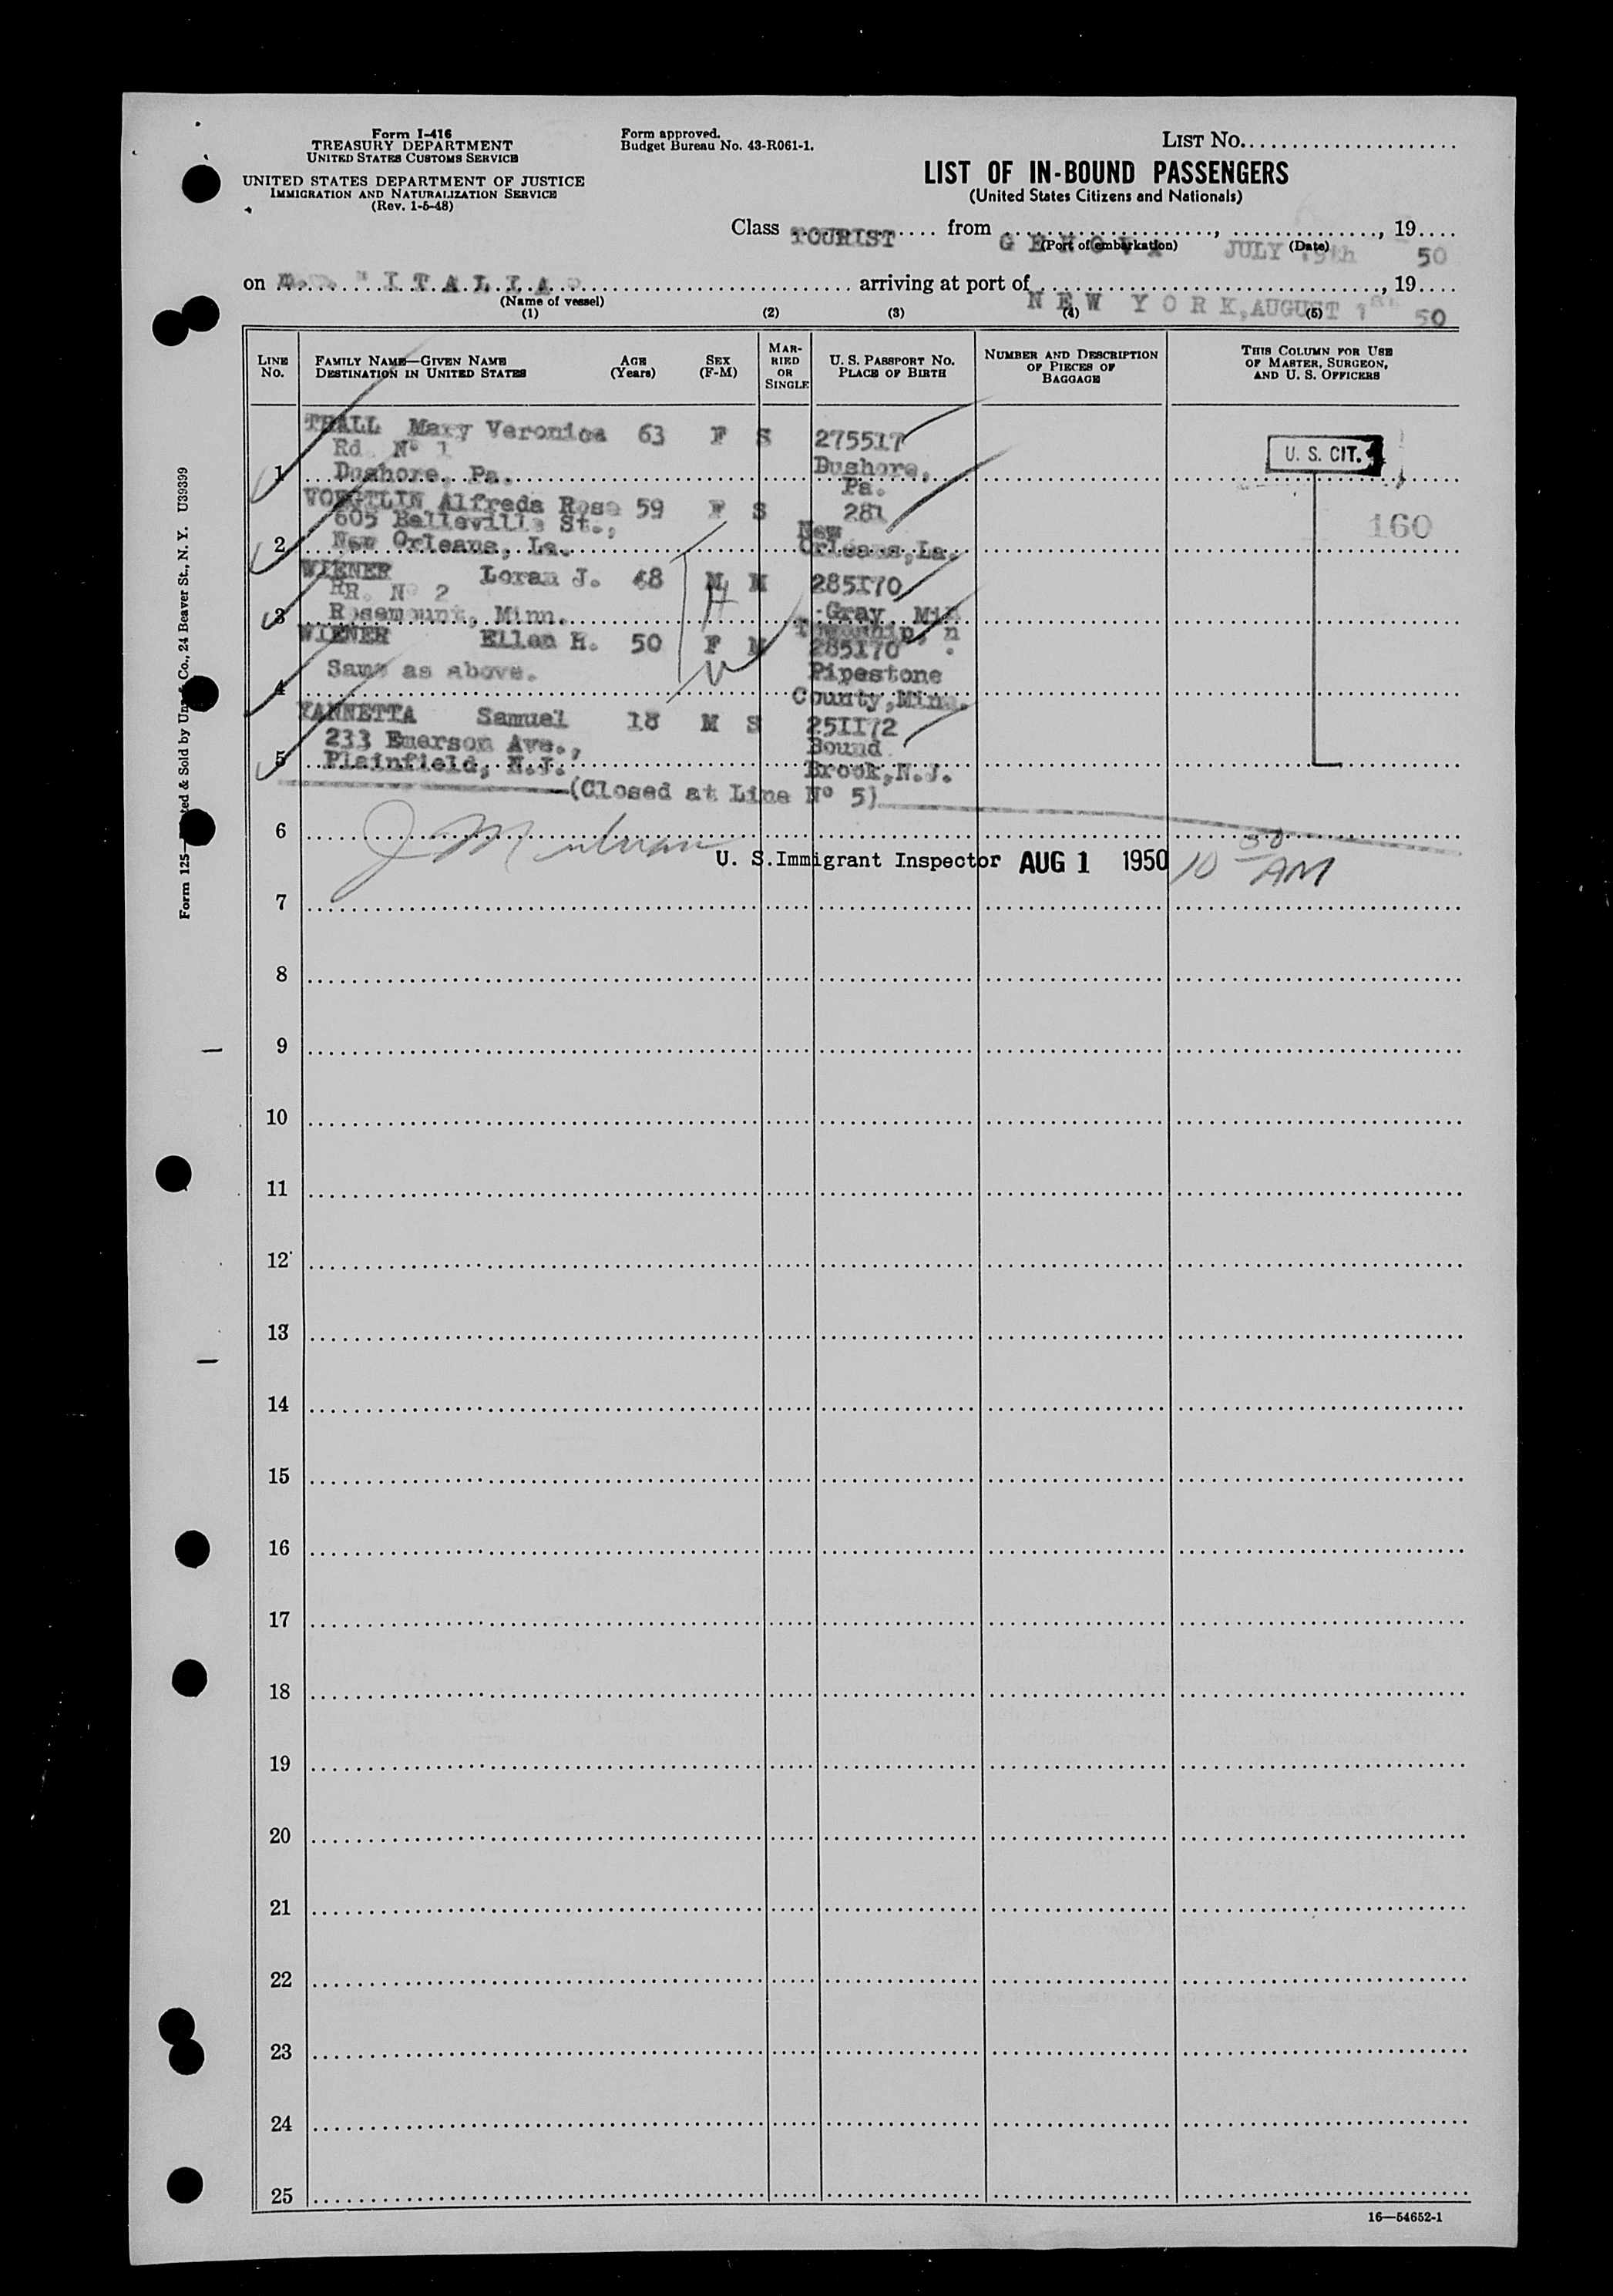 Form I-416
TREASURY DEPARTMENT
UNITED STATES CUSTOMS SERVICE
UNITED STATES DEPARTMENT OF JUSTICE
IMMIGRATION AND NATURALIZATION SERVICE
(Rev. 1-5-48)
Form approved.
Budget Bureau No. 43-R061-1.
LIST NO.
LIST OF IN-BOUND PASSENGERS
(United States Citizens and Nationals)
Class TOURIST from GENOVA, JULY 19th, 1950
(Port of embarkation) (Date)
on "ITALIA" arriving at port of NEW YORK, AUGUST 1st, 1950
(Name of vessel)
(1) (2) (3) (4) (5)
LINE NO. FAMILY NAME—GIVEN NAME DESTINATION IN UNITED STATES AGE (Years) SEX (F-M) MARRIED OR SINGLE U. S. PASSPORT NO. PLACE OF BIRTH NUMBER AND DESCRIPTION OF PIECES OF BAGGAGE THIS COLUMN FOR USE OF MASTER, SURGEON, AND U. S. OFFICERS
THALL Mary Veronica 63 F S 275517
Rd Nº 1
1 Dushore, Pa. Dushore, Pa.
U. S. CIT.
VOEGTLIN Alfreda Rose 59 F S 281
605 Belleville St.,
2 New Orleans, La. New Orleans, La.
160
WIENER Loran J. 48 M M 285170
RR. Nº 2
3 Rosemount, Minn. Gray, Township, Minn.
WIENER Ellen R. 50 F M 285170
4 Same as above. Pipestone County, Minn.
YANNETTA Samuel 18 M S 251172
233 Emerson Ave.,
5 Plainfield, N.J. Bound Brook, N.J.
(Closed at Line Nº 5)
6
U. S. Immigrant Inspector AUG 1 1950 10 30 AM
7
8
9
10
11
12
13
14
15
16
17
18
19
20
21
22
23
24
25
16—54652-1
Form 125— & Sold by Co., 24 Beaver St., N. Y. U39399